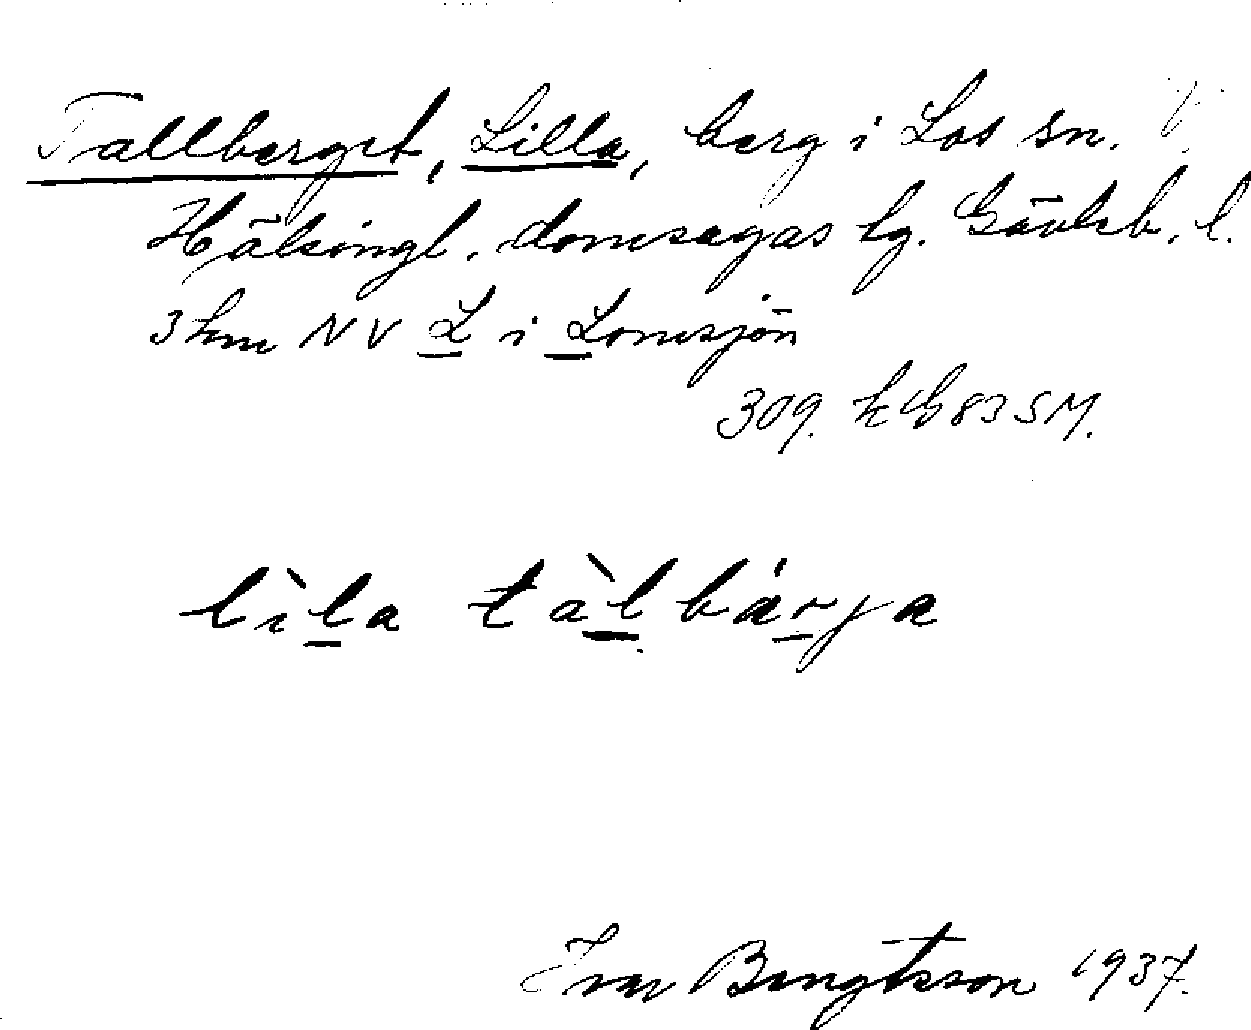 Tallberget, Lilla, berg i Los sn. V.
Hälsingl. domsagas tg. Gävleb. l.
3 km NV L i Lomsjön
309. kGb 83 SM.
lìla tàlbárja
Ivar Bengtsson 1937.